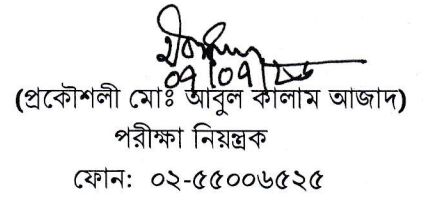 (প্রকৌশলী মোঃ আবুল কালাম আজাদ)
পরীক্ষা নিয়ন্ত্রক
ফোন: ০২-৫৫০০৬৫২৫